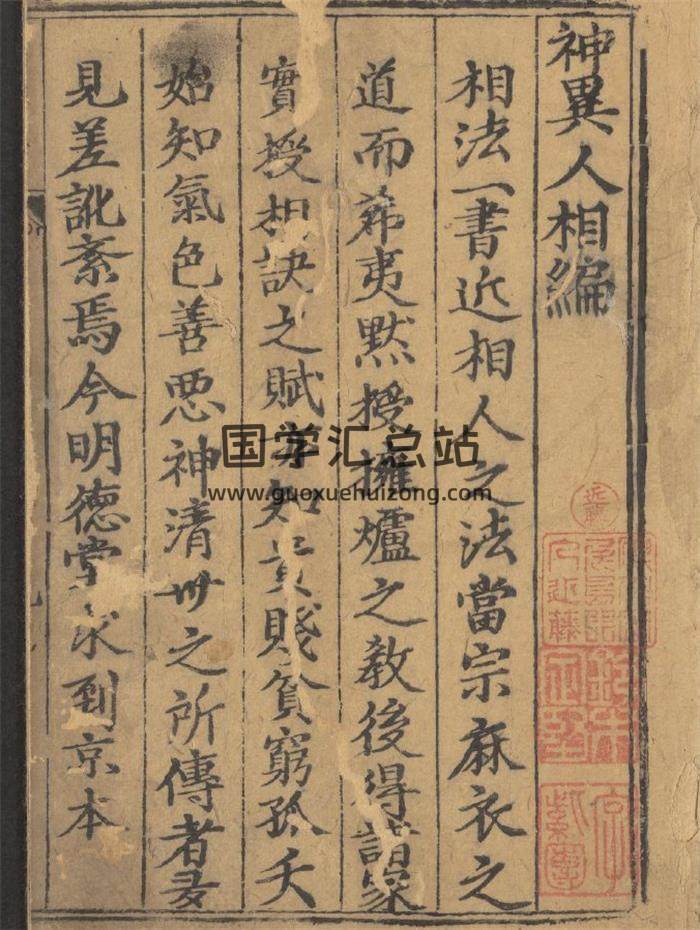 神異人相編
相法一書近相人之法當宗麻衣之
道而希夷黙授擁爐之教後得諸家
實授相訣之賦 知貴賤貧窮孤夭
始知氣色善惡神清丗之所傳者多
見差訛紊焉今明德堂求到京本
国学汇总站
www.guoxuehuizong.com